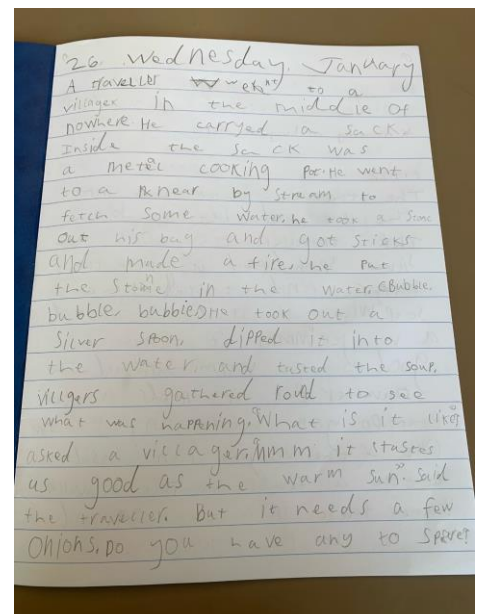 26. Wednesday. January
A traveller went to a
villager in the middle of
nowhere. He carryed a sack.
Inside the sack was
a metel cooking pot. He went
to a near by stream to
fetch some water. he took a stone
out his bag and got sticks
and made a fire. he put
the stone in the water. (Bubble,
bubble, bubble) He took out a
Silver spoon, dipped it into
the water and tasted the soup.
villgers gathered round to see
what was happening. "What is it like?"
asked a villager. "hmm it tastes
as good as the warm sun." said
the traveller. But it needs a few
Onions. Do you have any to spare?